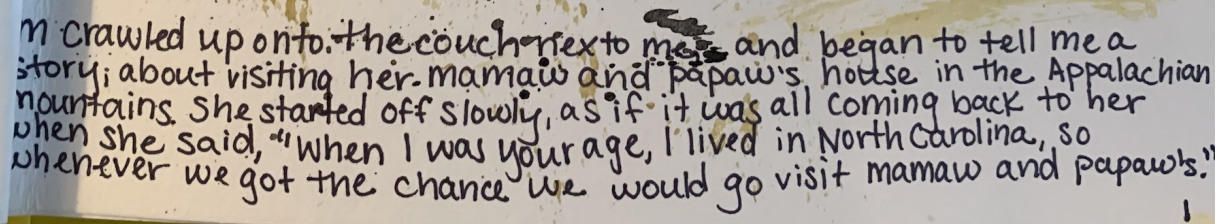 m crawled up onto the couch next to me and began to tell me a
story, about visiting her mamaw and papaw's house in the Appalachian
mountains. She started off slowly, as if it was all coming back to her
when she said, "When I was your age, I lived in North Carolina, so
whenever we got the chance we would go visit mamaw and papaw's."